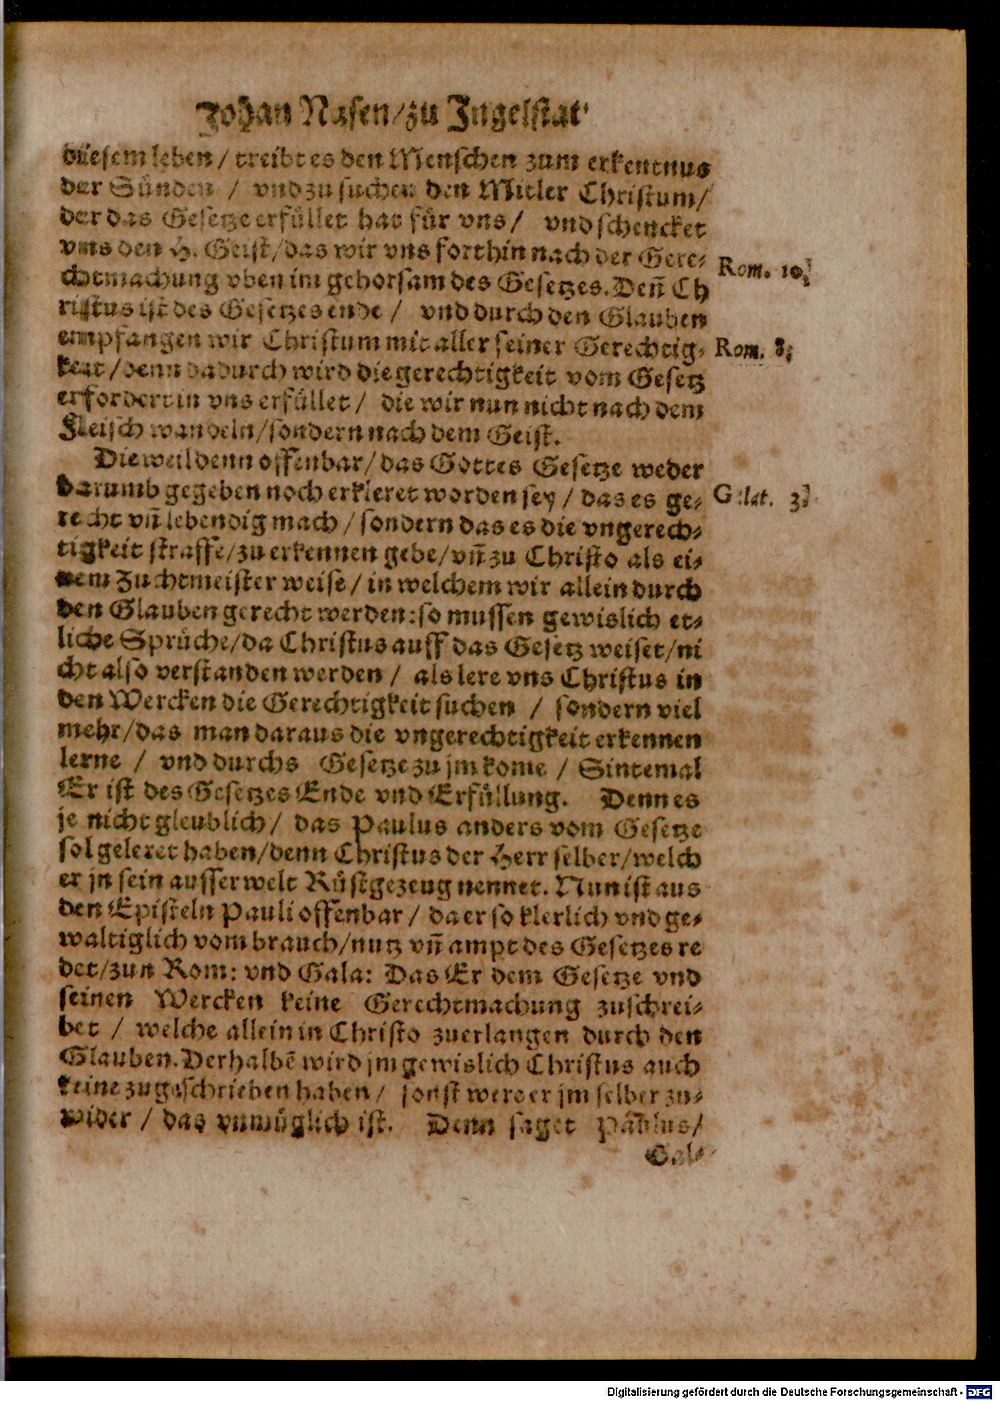 Johan Nasen/zu Jngelstat
diesem leben/ treibt es den Menschen zum erkentnus
der Sünden / vnd zu suchen den Mitler Christum/
der das Gesetze erfüllet hat für vns/ vnd schencket
vns den H. Geist/das wir vns forthin nach der Gere-
chtmachung vben im gehorsam des Gesetzes. Deñ Ch
Rom. 10.
ristus ist des Gesetzes ende / vnd durch den Glauben
empfangen wir Christum mit aller seiner Gerechtig-
Rom. 8.
keit/denn dadurch wird die gerechtigkeit vom Gesetz
erfordert in vns erfüllet/ die wir nun nicht nach dem
Fleisch wandeln/sondern nach dem Geist.
Dieweil denn offenbar/das Gottes Gesetze weder
darumb gegeben noch erkleret worden sey/ das es ge-
Galat. 3.
recht vñ lebendig mach/sondern das es die vngerech-
tigkeit straffe/zu erkennen gebe/vñ zu Christo als ei-
nem Zuchtmeister weise/in welchem wir allein durch
den Glauben gerecht werden:so mussen gewislich et-
liche Sprüche/da Christus auff das Gesetz weiset/ni
cht also verstanden werden/ als lere vns Christus in
den Wercken die Gerechtigkeit suchen / sondern viel
mehr/das man daraus die vngerechtigkeit erkennen
lerne / vnd durchs Gesetze zu jm kome / Sintemal
Er ist des Gesetzes Ende vnd Erfüllung. Denn es
je nicht gleublich/ das Paulus anders vom Gesetze
sol geleret haben/denn Christus der Herr selber/welch
er jn sein ausserwelt Rüstgezeug nennet. Nun ist aus
den Episteln Pauli offenbar/ da er so klerlich vnd ge-
waltiglich vom brauch/nutz vñ ampt des Gesetzes re
det/zun Rom: vnd Gala: Das Er dem Gesetze vnd
seinen Wercken keine Gerechtmachung zuschrei-
bet / welche allein in Christo zuerlangen durch den
Glauben. Derhalbē wird jm gewislich Christus auch
keine zugeschrieben haben/ sonst were er jm selber zu-
wider / das vnmüglich ist. Denn saget Paulus/
Gal-
Digitalisierung gefördert durch die Deutsche Forschungsgemeinschaft - DFG